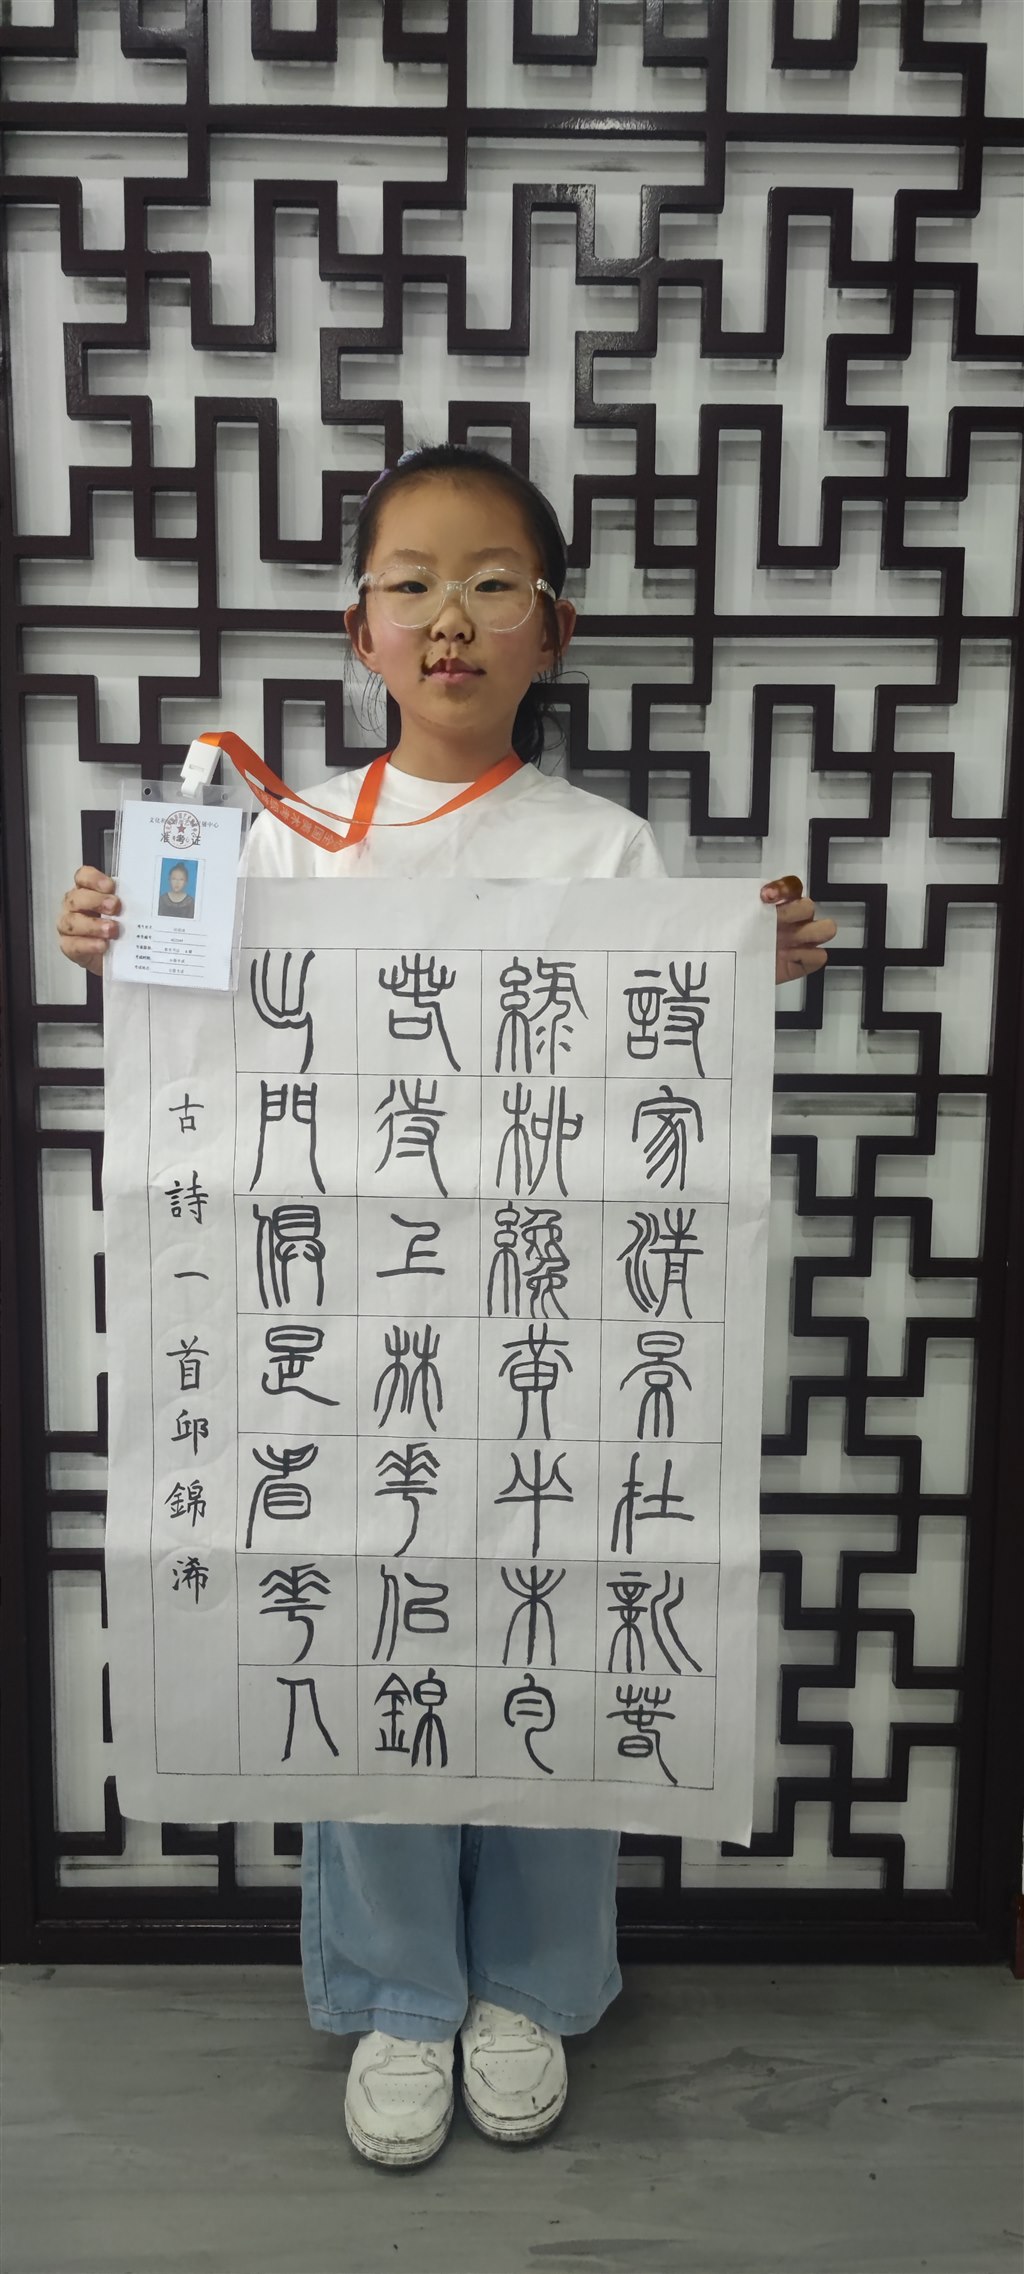 准考证
全国美术考级
詩家清景在新春
綠柳纔黃半未勻
若待上林花似錦
出門俱是看花人
古詩一首邱錦浠